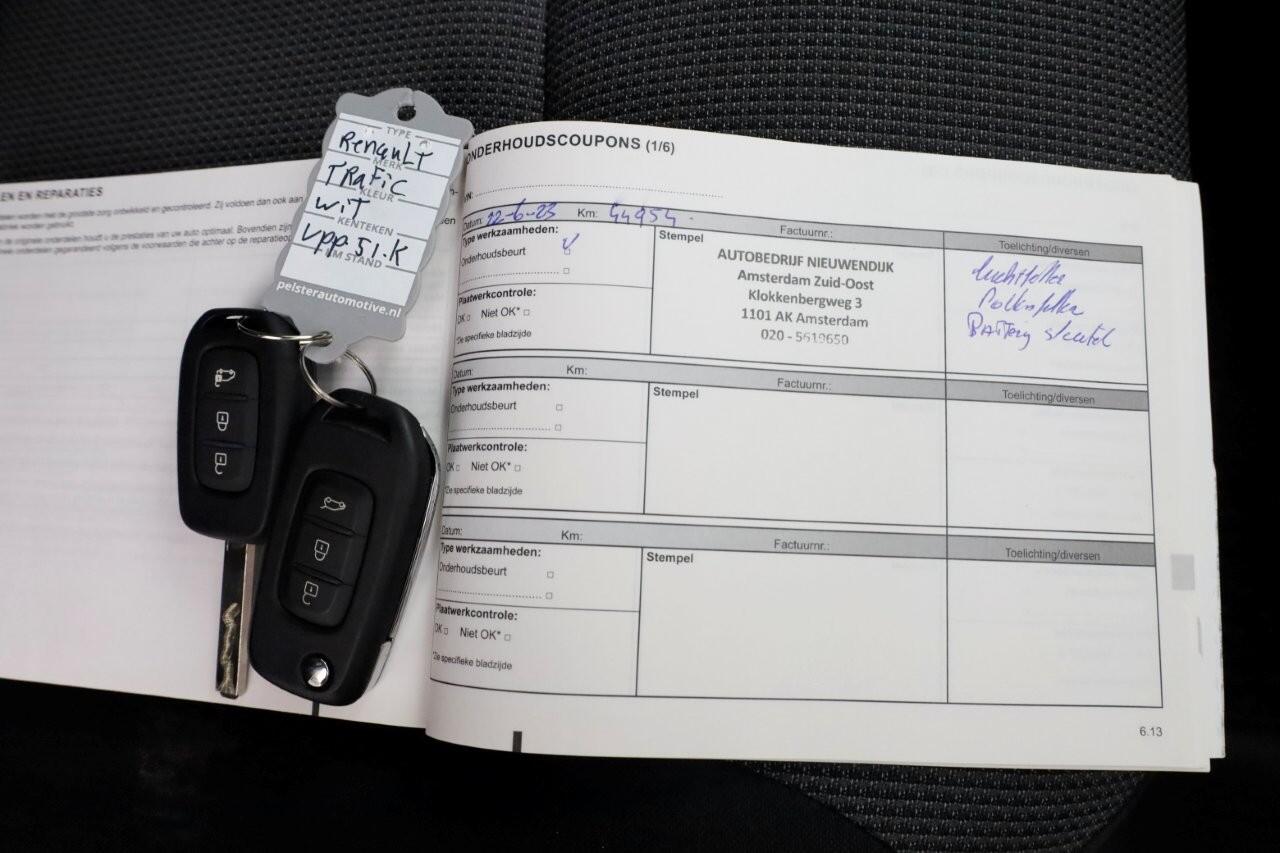 EN EN REPARATIES
TYPE
Renault
MERK
Trafic
KLEUR
wit
KENTEKEN
VPP.51.K
KM STAND
pelsterautomotive.nl
ONDERHOUDSCOUPONS (1/6)
Datum: 22-6-23 Km: 44954. Factuurnr.: Toelichting/diversen
Type werkzaamheden:
Onderhoudsbeurt
Plaatwerkcontrole:
OK Niet OK*
*De specifieke bladzijde
Stempel
AUTOBEDRIJF NIEUWENDIJK
Amsterdam Zuid-Oost
Klokkenbergweg 3
1101 AK Amsterdam
020 - 5619650
Luchtfilter
Pollenfilter
Battery sleutel
Datum: Km: Factuurnr.: Toelichting/diversen
Type werkzaamheden:
Onderhoudsbeurt
Plaatwerkcontrole:
OK Niet OK*
*De specifieke bladzijde
Stempel
Datum: Km: Factuurnr.: Toelichting/diversen
Type werkzaamheden:
Onderhoudsbeurt
Plaatwerkcontrole:
OK Niet OK*
*De specifieke bladzijde
Stempel
6.13